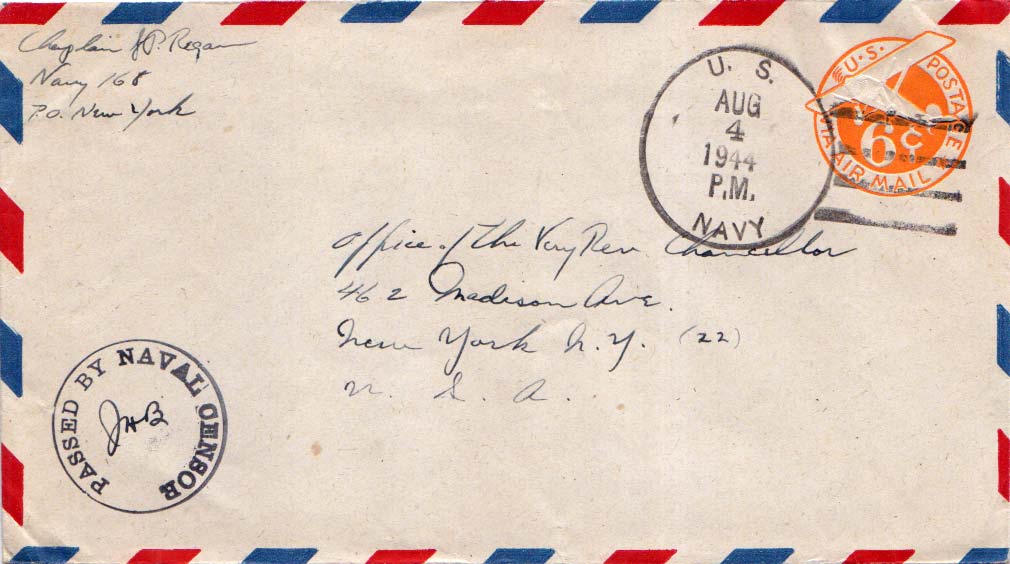 Chaplain J.P. Regan
Navy 168
P.O. New York
U. S.
AUG
4
1944
P.M.
NAVY
U.S. POSTAGE
6¢
VIA AIR MAIL
Office of the Very Rev Chancellor
462 Madison Ave.
New York N.Y. (22)
U. S. A.
PASSED BY NAVAL CENSOR
JHB